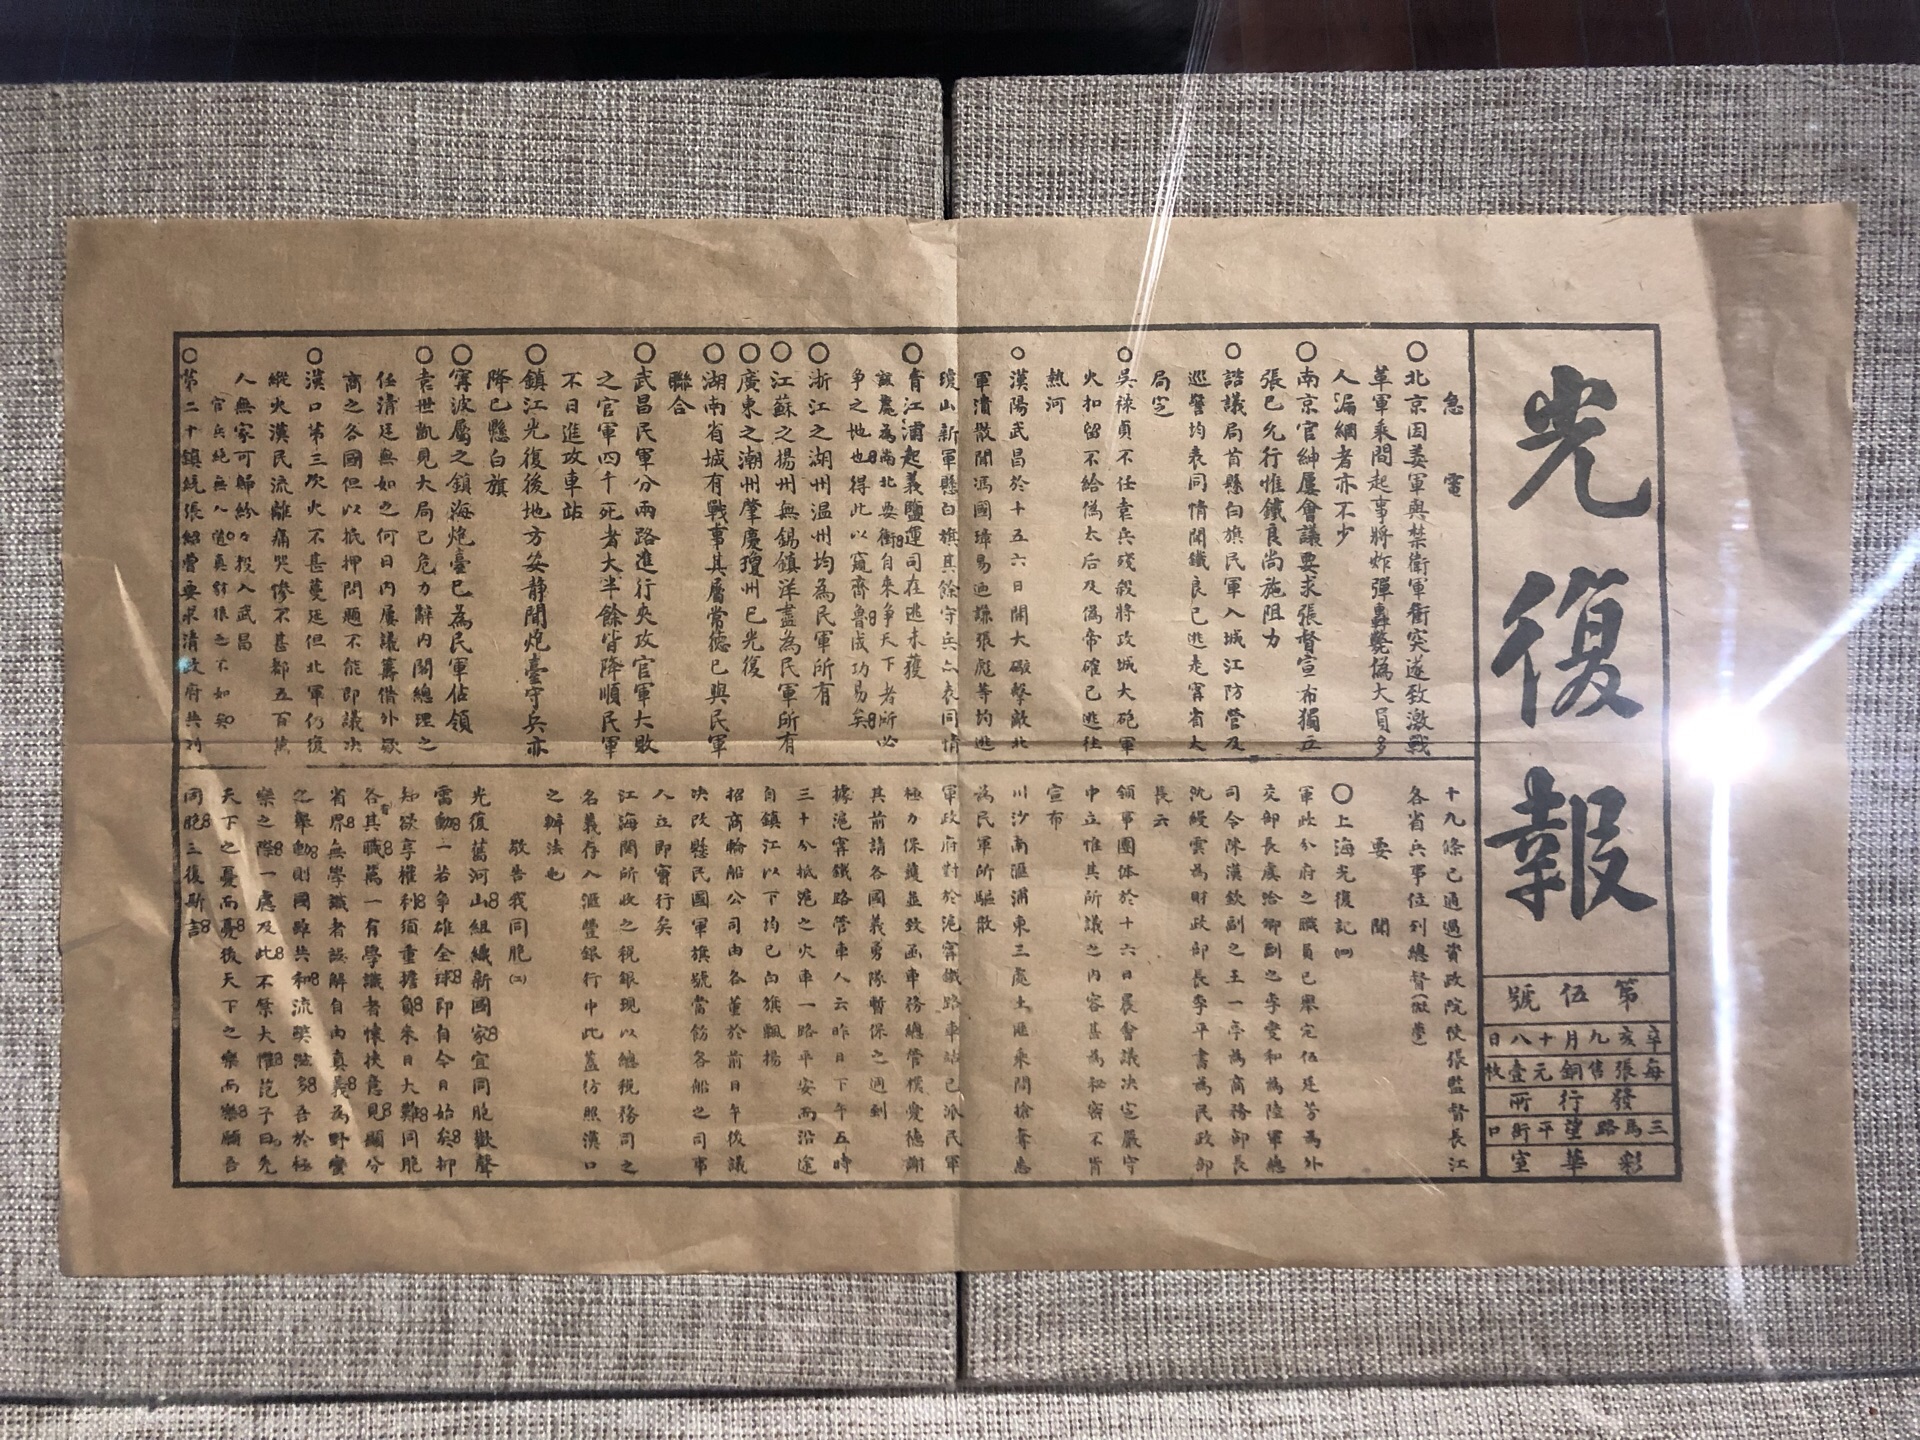 光復報
第伍號
辛亥九月十八日
每張售銅元壹枚
發行所
三馬路望平街口
彩華室
急電
○北京因姜軍與禁衛軍衝突遂致激戰
革軍乘間起事將炸彈轟斃偽大員多
人漏網者亦不少
○南京官紳屢會議要求張督宣布獨立
張已允行惟鐵良尚施阻力
○諮議局首懸白旗民軍入城江防營及
巡警均表同情聞鐵良已逃走甯省大
局定
○吳祿貞不任袁兵殘殺將攻城大砲軍
火扣留不給偽太后及偽帝確已逃往
熱河
○漢陽武昌於十五六日開大礮擊敵北
軍潰散聞馮國璋易迺謙張彪等均逃
瓊山新軍懸白旗其餘守兵亦表同情
○青江浦起義鹽運司在逃未獲
該處為南北要衝自來爭天下者所必
爭之地也得此以窺齊魯成功易矣
○浙江之湖州温州均為民軍所有
○江蘇之揚州無錫鎮洋盡為民軍所有
○廣東之潮州肇慶瓊州已光復
○湖南省城有戰事其屬常德已與民軍
聯合
○武昌民軍分兩路進行夾攻官軍大敗
之官軍四千死者大半餘皆降順民軍
不日進攻車站
○鎮江光復後地方安靜聞炮臺守兵亦
降已懸白旗
○甯波屬之鎮海炮臺已為民軍佔領
○袁世凱見大局已危力辭內閣總理之
任清廷無如之何日內屢議籌借外欵
商之各國但以抵押問題不能即議決
○漢口第三次火不甚蔓延但北軍仍復
縱火漢民流離痛哭慘不甚都五百萬
人無家可歸紛々投入武昌
官兵絕無人道真豺狼之不如矣
○第二十鎮統張紹曾要求清政府共列
十九條已通過資政院使張監督長江
各省兵事位列總督
要聞
○上海光復記㈣
軍政分府之職員已舉定伍廷芳為外
交部長虞洽卿副之李燮和為陸軍總
司令陳漢欽副之王一亭為商務部長
沈縵雲為財政部長李平書為民政部
長云
領軍團体於十六日晨會議决定嚴守
中立惟其所議之內容甚為秘密不肯
宣布
川沙南滙浦東三處土匪乘間搶奪悉
為民軍所驅散
軍政府對於滬甯鐵路車站已派民軍
極力保護並致函車務總管樸愛德謝
其前請各國義勇隊暫保之通到
據滬甯鐵路管車人云昨日下午五時
三十分抵滬之火車一路平安而沿途
自鎮江以下均已白旗飄揚
招商輪船公司由各董於前日午後議
決改懸民國軍旗號當飭各船之司事
人立即實行矣
江海關所收之稅銀現以總稅務司之
名義存入滙豐銀行中此蓋仿照漢口
之辦法也
敬告我同胞㈡
光復舊河山組織新國家宜同胞歡聲
雷動一若爭雄全球即自今日始矣抑
知欲享權利須重擔負來日大難同胞
各其職萬一有學識者懷挾意見顯分
省界無學識者誤解自由真義為野蠻
之舉動則國雖共和流弊滋多吾於極
樂之際一慮及此不禁大懼范子曰先
天下之憂而憂後天下之樂而樂願吾
同胞三復斯言